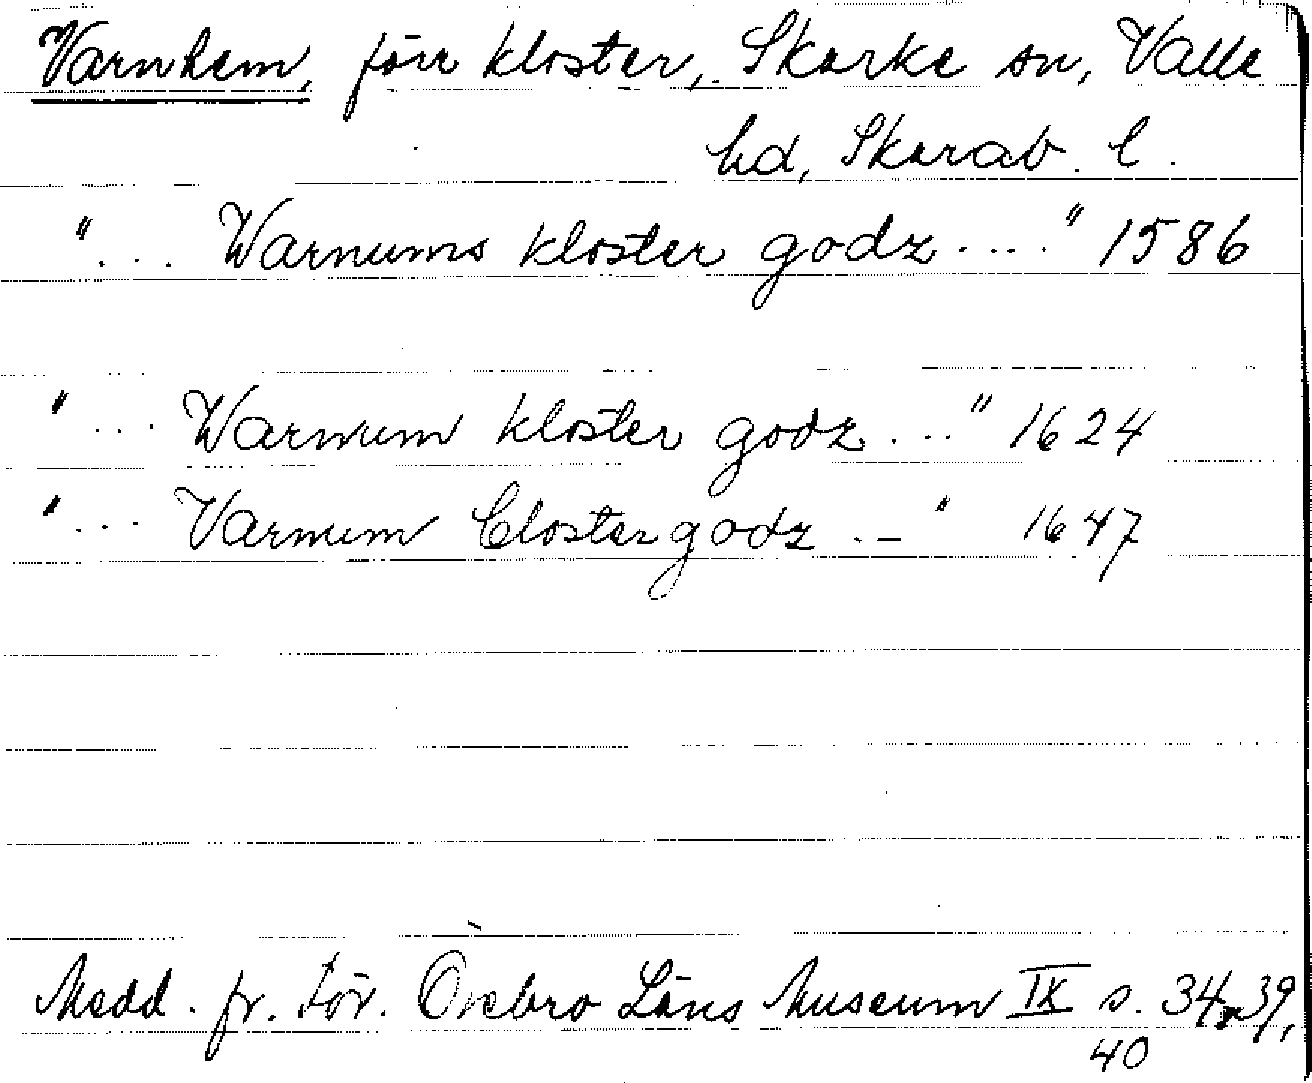 Varnhem, förr kloster, Skarke sn, Valle
hd, Skarab. l.
"... Warnums kloster godz ...." 1586
"... Warnum kloster godz ..." 1624
"... Varnum Clostergodz .. — " 1647
Medd. fr. För. Örebro Läns Museum IX s. 34, 39,
40